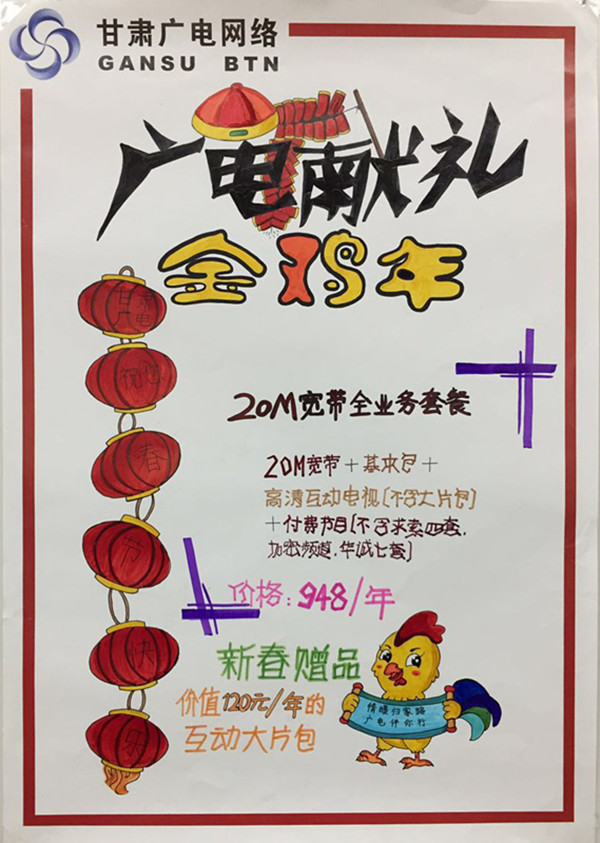 甘肃广电网络
GANSU BTN
广电献礼
金鸡年
甘肃
广电
祝您
春
节
快
乐
20M宽带全业务套餐
20M宽带＋基本包＋
高清互动电视(不含大片包)
＋付费节目(不含求索四套,
加密频道,华诚七套)
价格:948/年
新春赠品
价值120元/年的
互动大片包
情暖归家路
广电伴你行